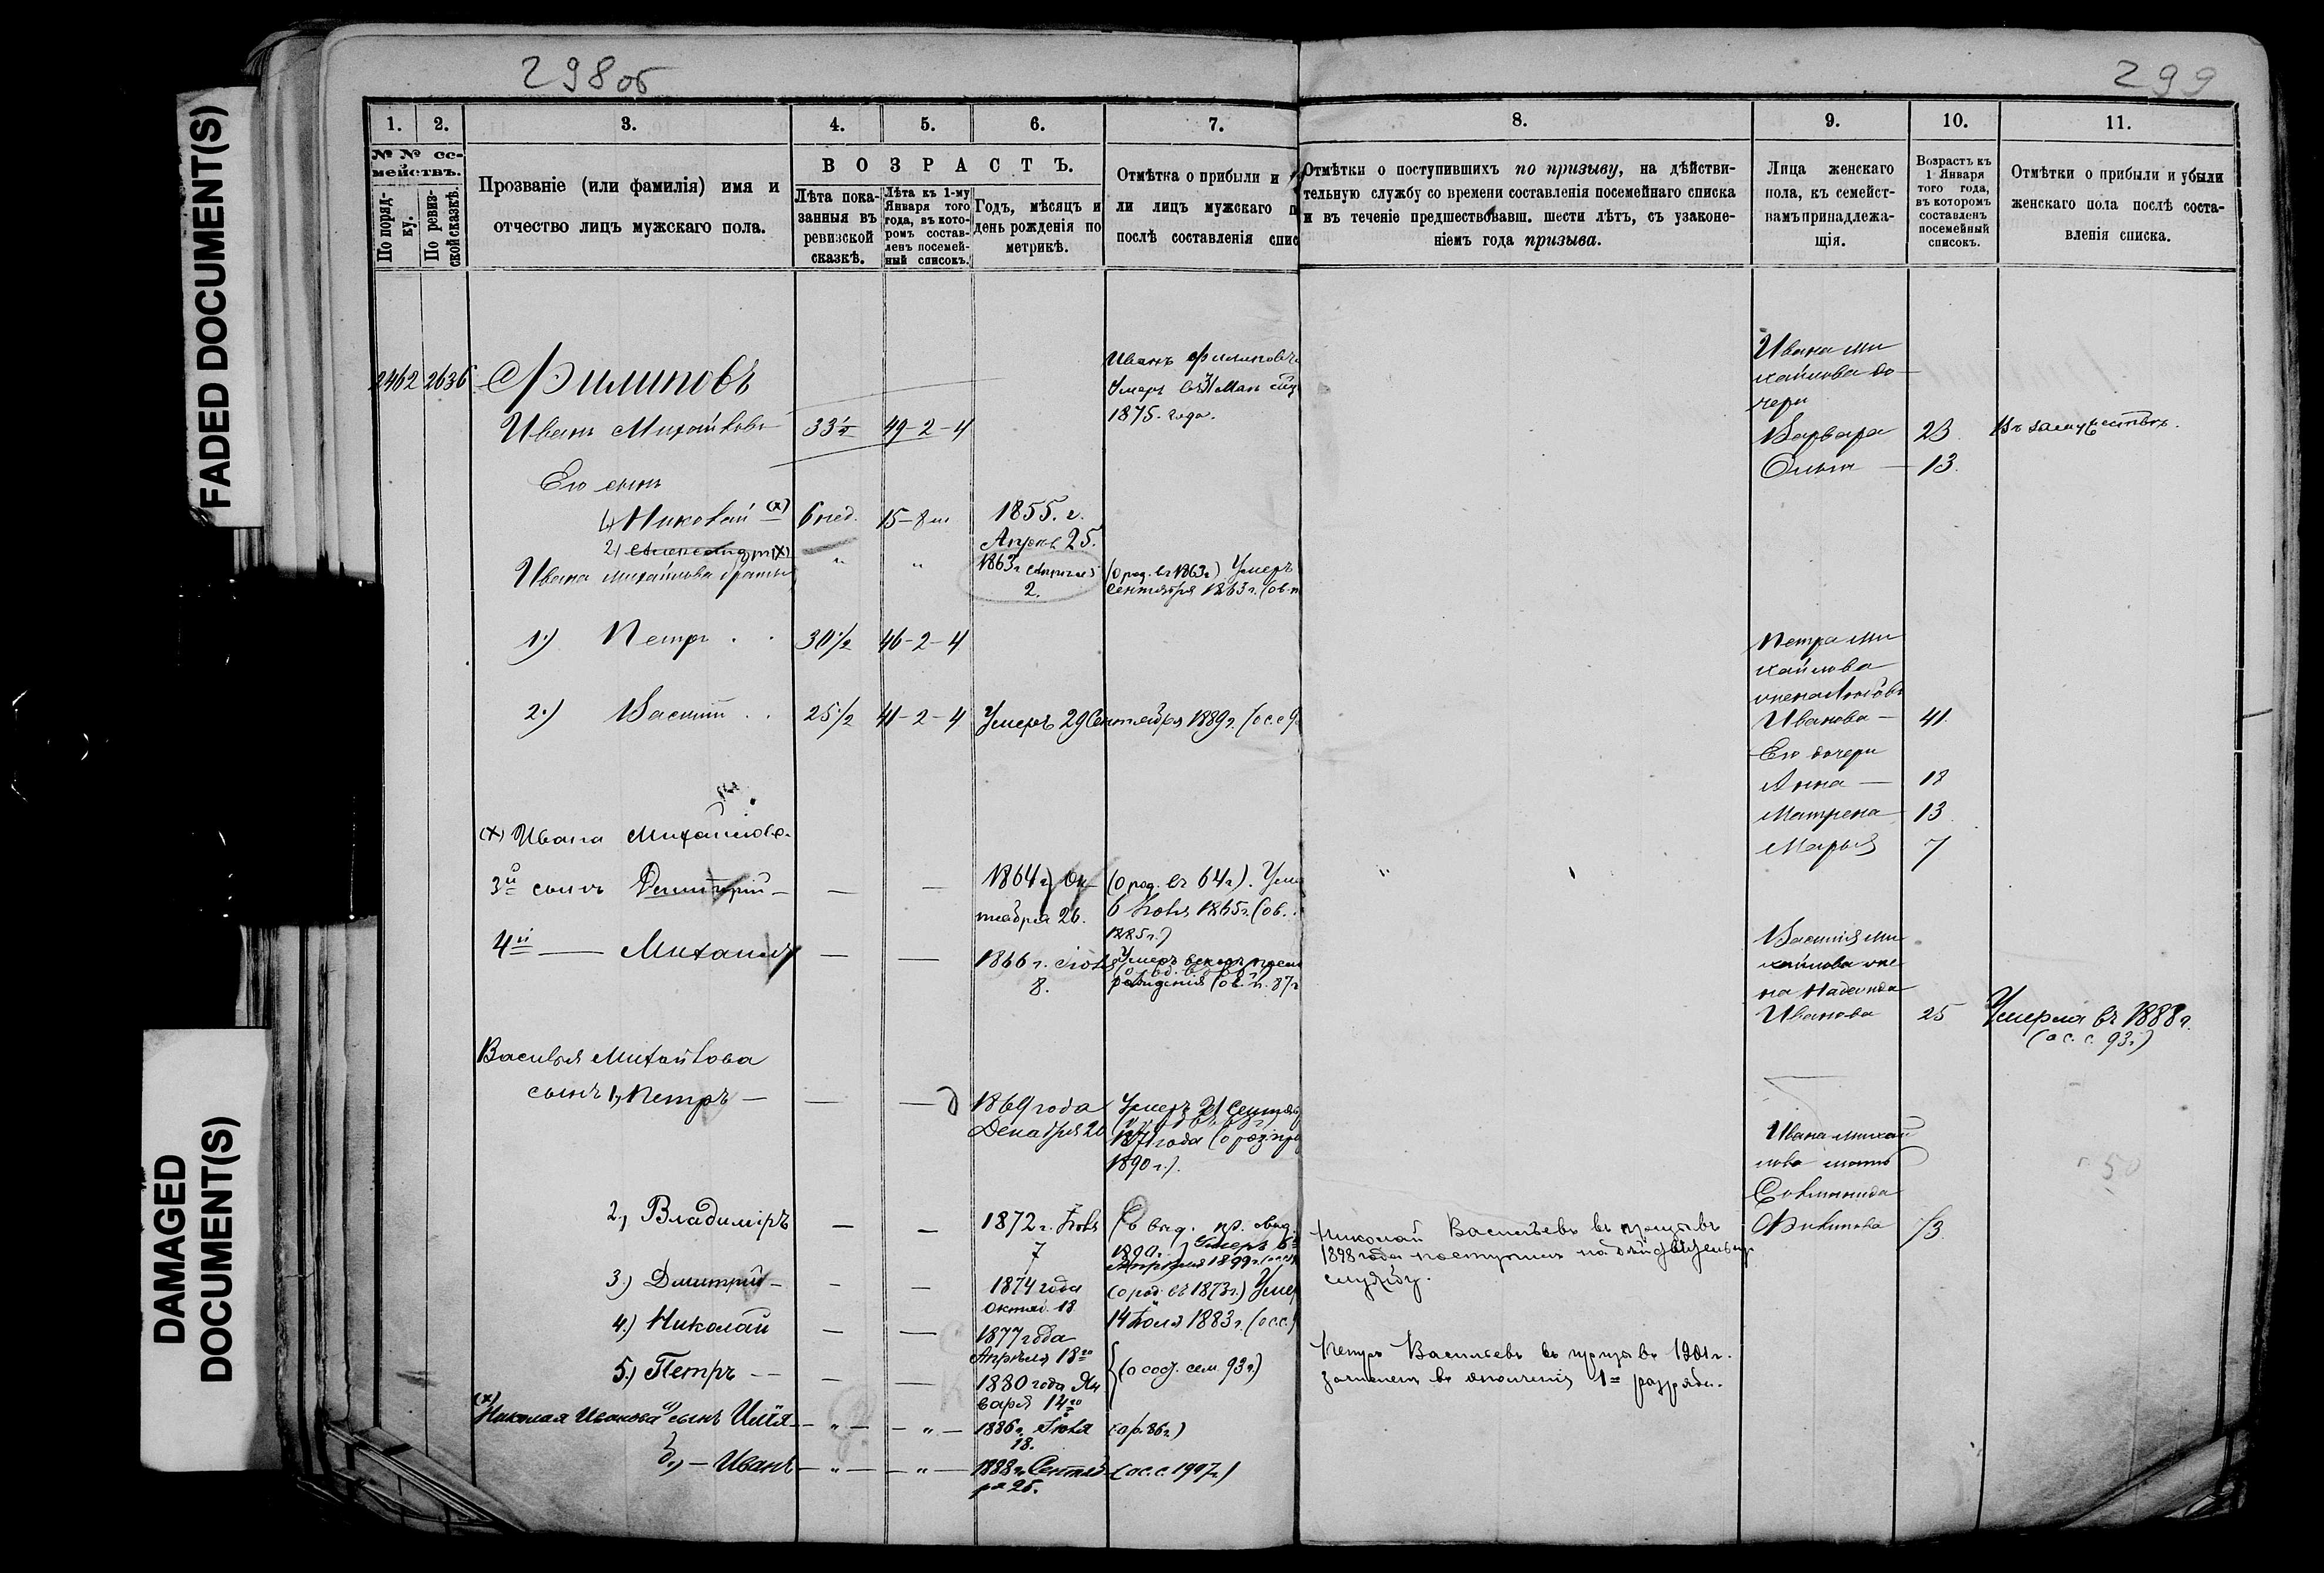 FADED DOCUMENT(S)
DAMAGED
DOCUMENT(S)
298об
1. 2. 3. 4. 5. 6. 7.
№ № се-
мействъ.
По поряд-
ку.
По ревиз-
ской сказкѣ.
Прозваніе (или фамилія) имя и
отчество лицъ мужскаго пола.
ВОЗРАСТЪ.
Лѣта пока-
занныя въ
ревизской
сказкѣ.
Лѣта къ 1-му
Января того
года, въ кото-
ромъ состав-
ленъ посемей-
ный списокъ.
Годъ, мѣсяцъ и
день рожденія по
метрикѣ.
Отмѣтка о прибыли и
ли лицъ мужскаго п
послѣ составленія спис
2462 2636 Филиповъ
Иванъ Филиповъ
Умеръ
1875. года.
Иванъ Михайловъ 33½ 49-2-4
Его сынъ
1) Николай (х) 6 нед. 15-8 м 1855. г.
Апрѣл 25.
2) Александръ (х) " " 1863 г.
2.
(о род. въ 1863 г) Умеръ
Сентября 1863 г. (об.
Ивана Михайлова братья
1.) Петръ . . 30½ 46-2-4
2.) Василій . . 25½ 41-2-4 Умеръ 29 Сентября 1889 г. (о с. с 9
(х) Ивана Михайлова
3й сынъ Димитрій — — — 1864 г. Ок-
тября 26.
(о род. въ 64 г). Уме
6 Іюня 1865 г. (об.
1885 г.)
4й — Михаилъ — — 1866 г. Іюня
8.
Умеръ вскорѣ после
(о род. въ 66 г)
рожденія (об. п. 87 г
Василья Михайлова
сынъ 1, Петръ — — — 1869 года
Декабря 20
Умеръ 21 Сентяб
1871 года
1890 г.).
2, Владиміръ — — 1872 г. Іюня
7
1890 г.) Умеръ
Апрѣля 1899 г.
3.) Дмитрій — — — 1874 года
Октяб. 18
(о род. въ 1873 г.) Умер
14 Іюля 1883 г. (о с.с.)
4.) Николай — — 1877 года
Апрѣля 18го
5.) Петръ — — — 1880 года Ян
варя 14го
(о сос. сем. 93 г)
(х)
Николая Иванова 1) сынъ Илія — " — — " — 1886 г. Іюля
18.
(о р. 86 г.)
2,) — Иванъ — " — — " — 1888 г. Сентяб
ря 25.
(о с. с. 1907 г)
299
8. 9. 10. 11.
Отмѣтки о поступившихъ по призыву, на дѣйстви-
тельную службу со времени составленія посемейнаго списка
и въ теченіе предшествовавш. шести лѣтъ, съ узаконе-
ніемъ года призыва.
Лица женскаго
пола, къ семейст-
вамъ принадлежа-
щія.
Возрастъ къ
1 Января
того года,
въ которомъ
составленъ
посемейный
списокъ.
Отмѣтки о прибыли и убыли
женскаго пола послѣ соста-
вленія списка.
Ивана Ми
хайлова до
чери
Варвара 23. Въ замужествѣ.
Ольга — 13.
Петра Ми
хайлова
жена Любовь
Иванова — 41.
Его дочери
Анна — 18
Матрена 13
Марья 7
Василія Ми
хайлова же
на Надежда
Иванова 25 Умерла въ 1888 г.
(о с. с. 93 г)
Ивана Михай
лова мать
Филипова 73
Николай Васильевъ въ призывъ
1898 года поступилъ на дѣйствительную
службу.
Петръ Васильевъ въ призывъ 1901 г.
зачисленъ въ ополченіе 1го разряда.